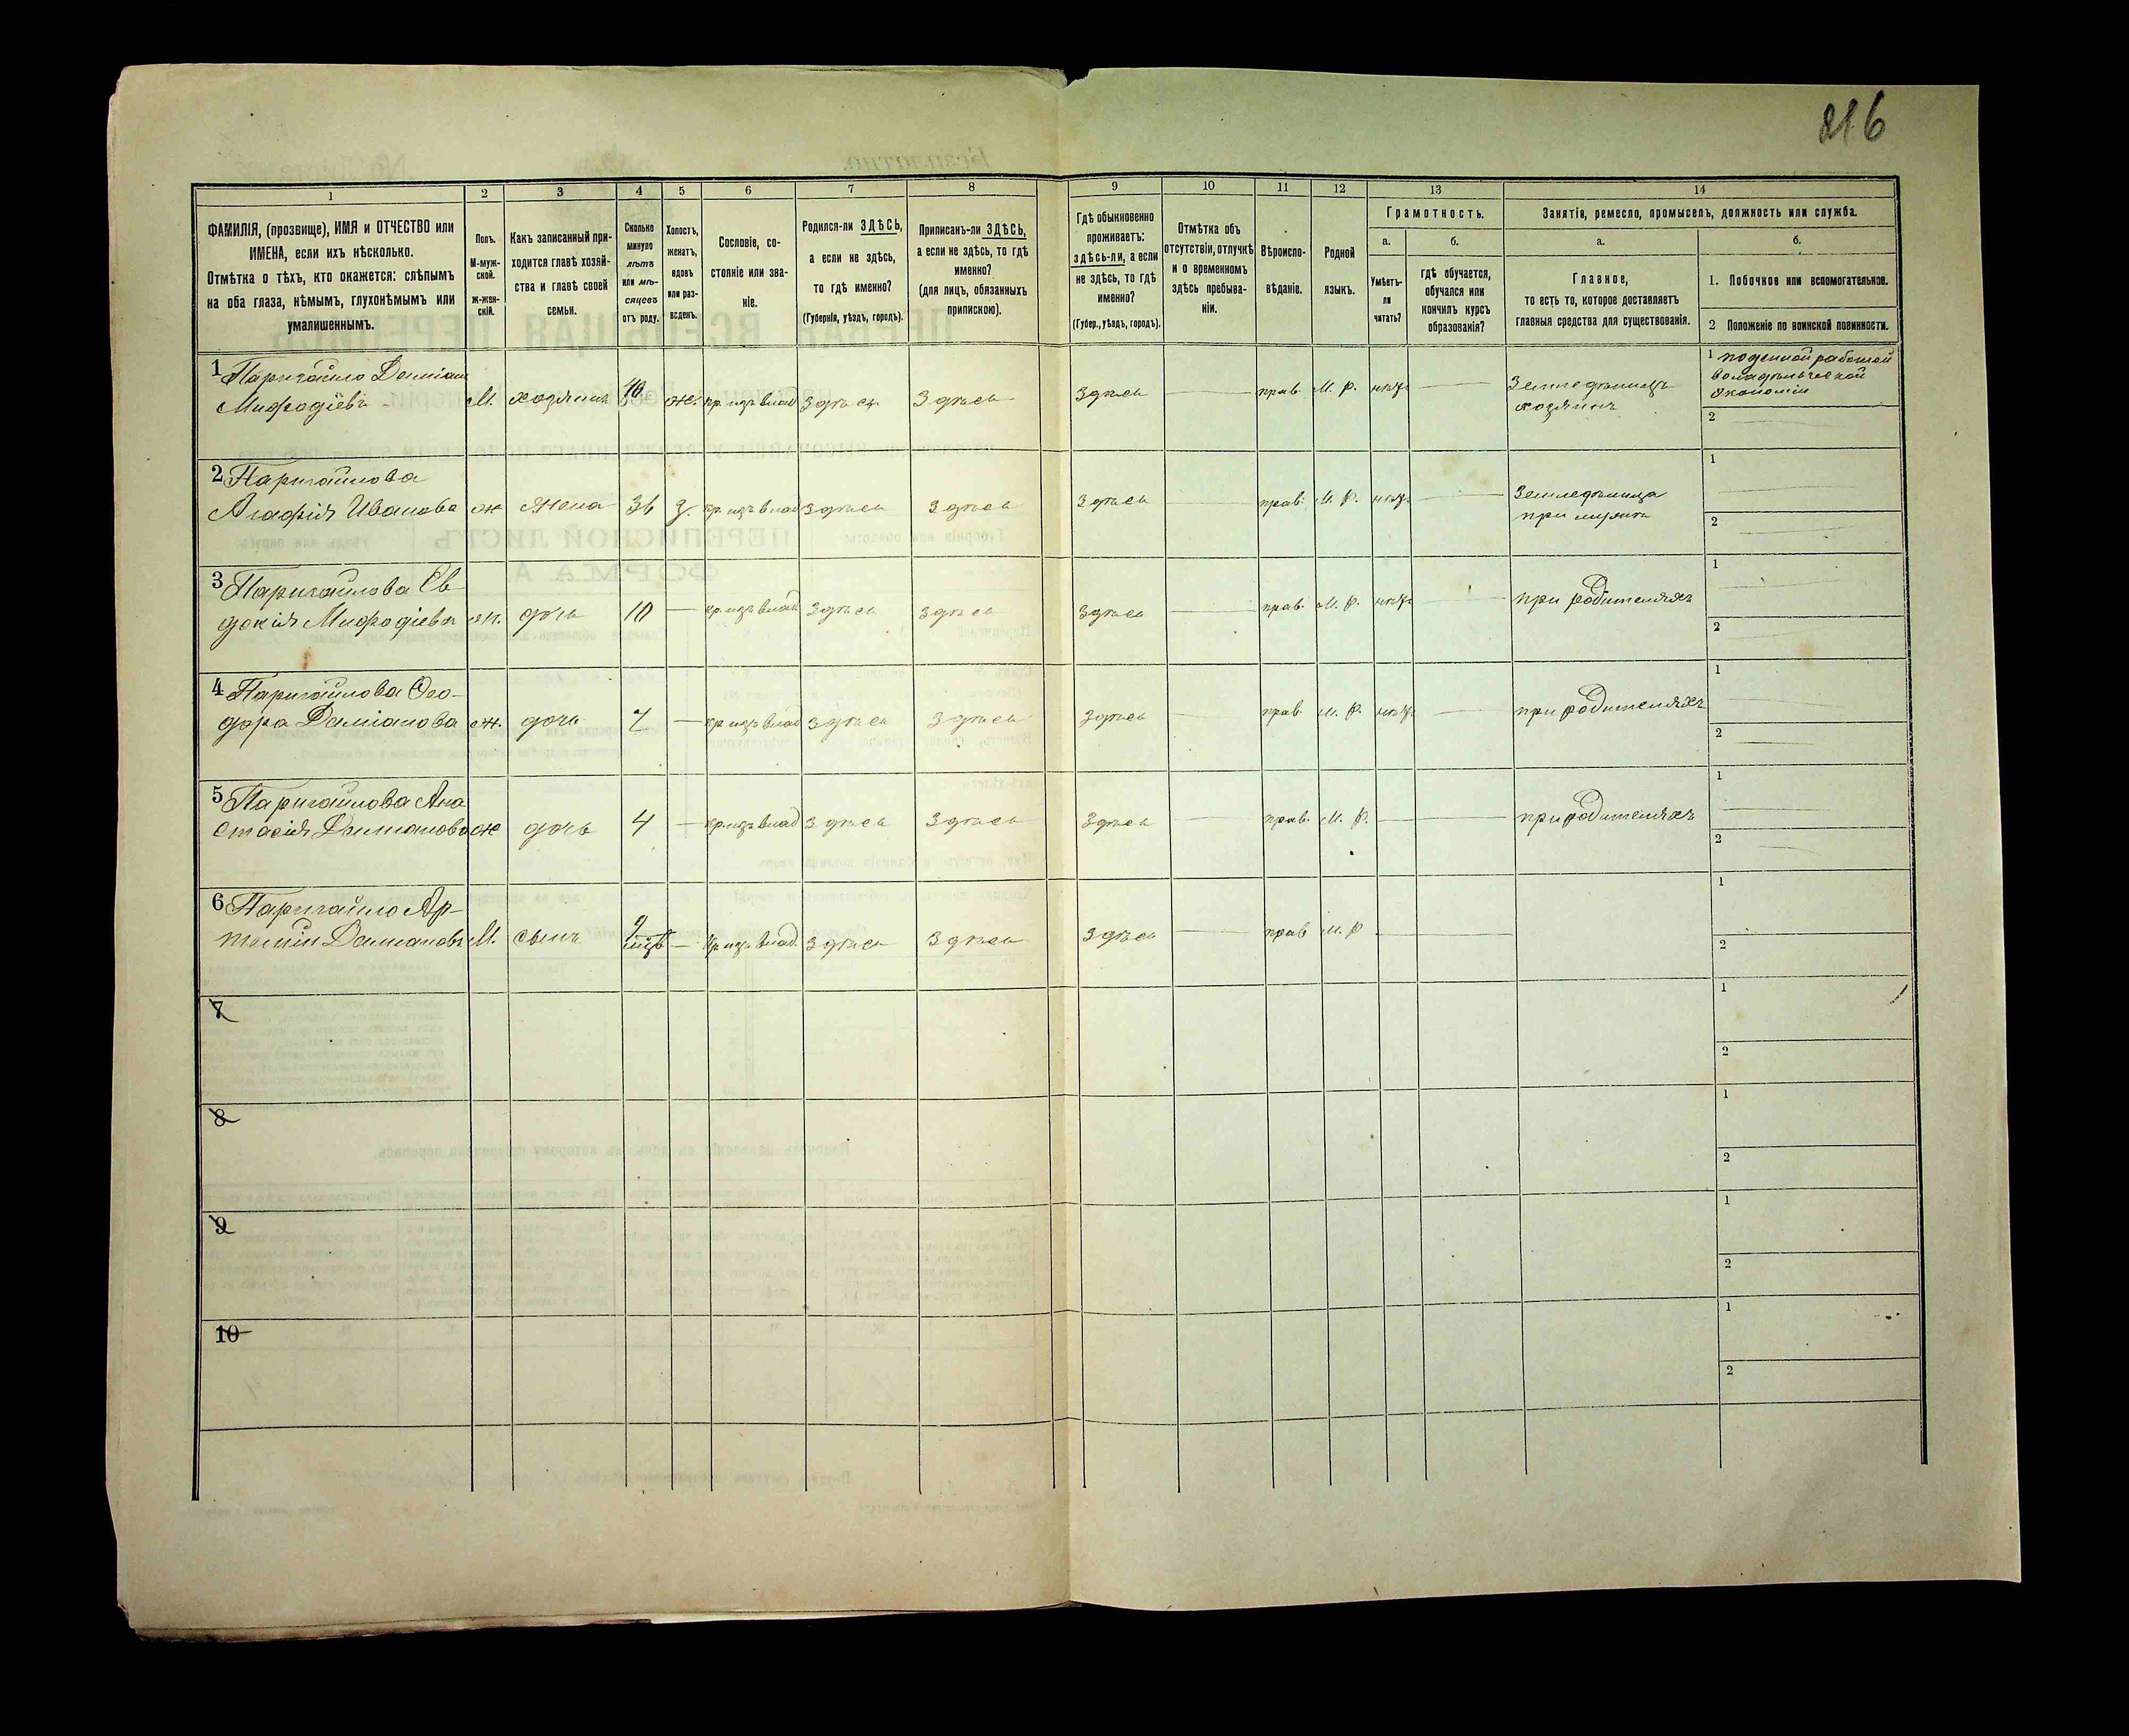 216
1 2 3 4 5 6 7 8 9 10 11 12 13 14
ФАМИЛІЯ, (прозвище), ИМЯ и ОТЧЕСТВО или
ИМЕНА, если ихъ нѣсколько.
Отмѣтка о тѣхъ, кто окажется: слѣпымъ
на оба глаза, нѣмымъ, глухонѣмымъ или
умалишеннымъ.
Полъ.
М-муж-
ской.
Ж-жен-
скій.
Какъ записанный при-
ходится главѣ хозяй-
ства и главѣ своей
семьи.
Сколько
минуло
лѣтъ
или мѣ-
сяцевъ
отъ роду.
Холостъ,
женатъ,
вдовъ
или раз-
веденъ.
Сословіе, со-
стояніе или зва-
ніе.
Родился-ли ЗДѢСЬ,
а если не здѣсь,
то гдѣ именно?
(Губернія, уѣздъ, городъ).
Приписанъ-ли ЗДѢСЬ,
а если не здѣсь, то гдѣ
именно?
(для лицъ, обязанныхъ
припискою).
Гдѣ обыкновенно
проживаетъ:
здѣсь-ли, а если
не здѣсь, то гдѣ
именно?
(Губер., уѣздъ, городъ).
Отмѣтка объ
отсутствіи, отлучкѣ
и о временномъ
здѣсь пребыва-
ніи.
Вѣроиспо-
вѣданіе.
Родной
языкъ.
Грамотность.
а.
Умѣетъ-
ли
читать?
б.
гдѣ обучается,
обучался или
кончилъ курсъ
образованія?
Занятія, ремесло, промыселъ, должность или служба.
а.
Главное,
то есть то, которое доставляетъ
главныя средства для существованія.
б.
1. Побочное или вспомогательное.
2 Положеніе по воинской повинности.
1 Даміанъ
Мифодіевъ М. хозяинъ ж. кр. изъ влад здѣсь здѣсь здѣсь прав. М. р. нѣтъ Земледѣлецъ
хозяинъ
1 поденной работой
владѣльческой
экономіи
2
2
Агафія Иванова ж жена 36 з. кр. изъ влад здѣсь здѣсь здѣсь прав. М. р. нѣтъ Земледѣлица
при мужѣ
1
2
3 Ев-
докія Мифодіева ж. дочь 10 кр. изъ влад здѣсь здѣсь здѣсь прав. М. р. нѣтъ при родителяхъ
1
2
4 Ѳео-
дора Даміанова ж. дочь 7 кр. изъ влад здѣсь здѣсь здѣсь прав. М. р. нѣтъ при родителяхъ
1
2
5 Ана
стасія Даміанова ж дочь 4 кр. изъ влад здѣсь здѣсь здѣсь прав. М. р. при родителяхъ
1
2
6 Ар-
темій Даміановъ М. сынъ 9 кр. изъ влад. здѣсь здѣсь здѣсь прав М. р
1
2
7
1
2
8
1
2
9
1
2
10
1
2